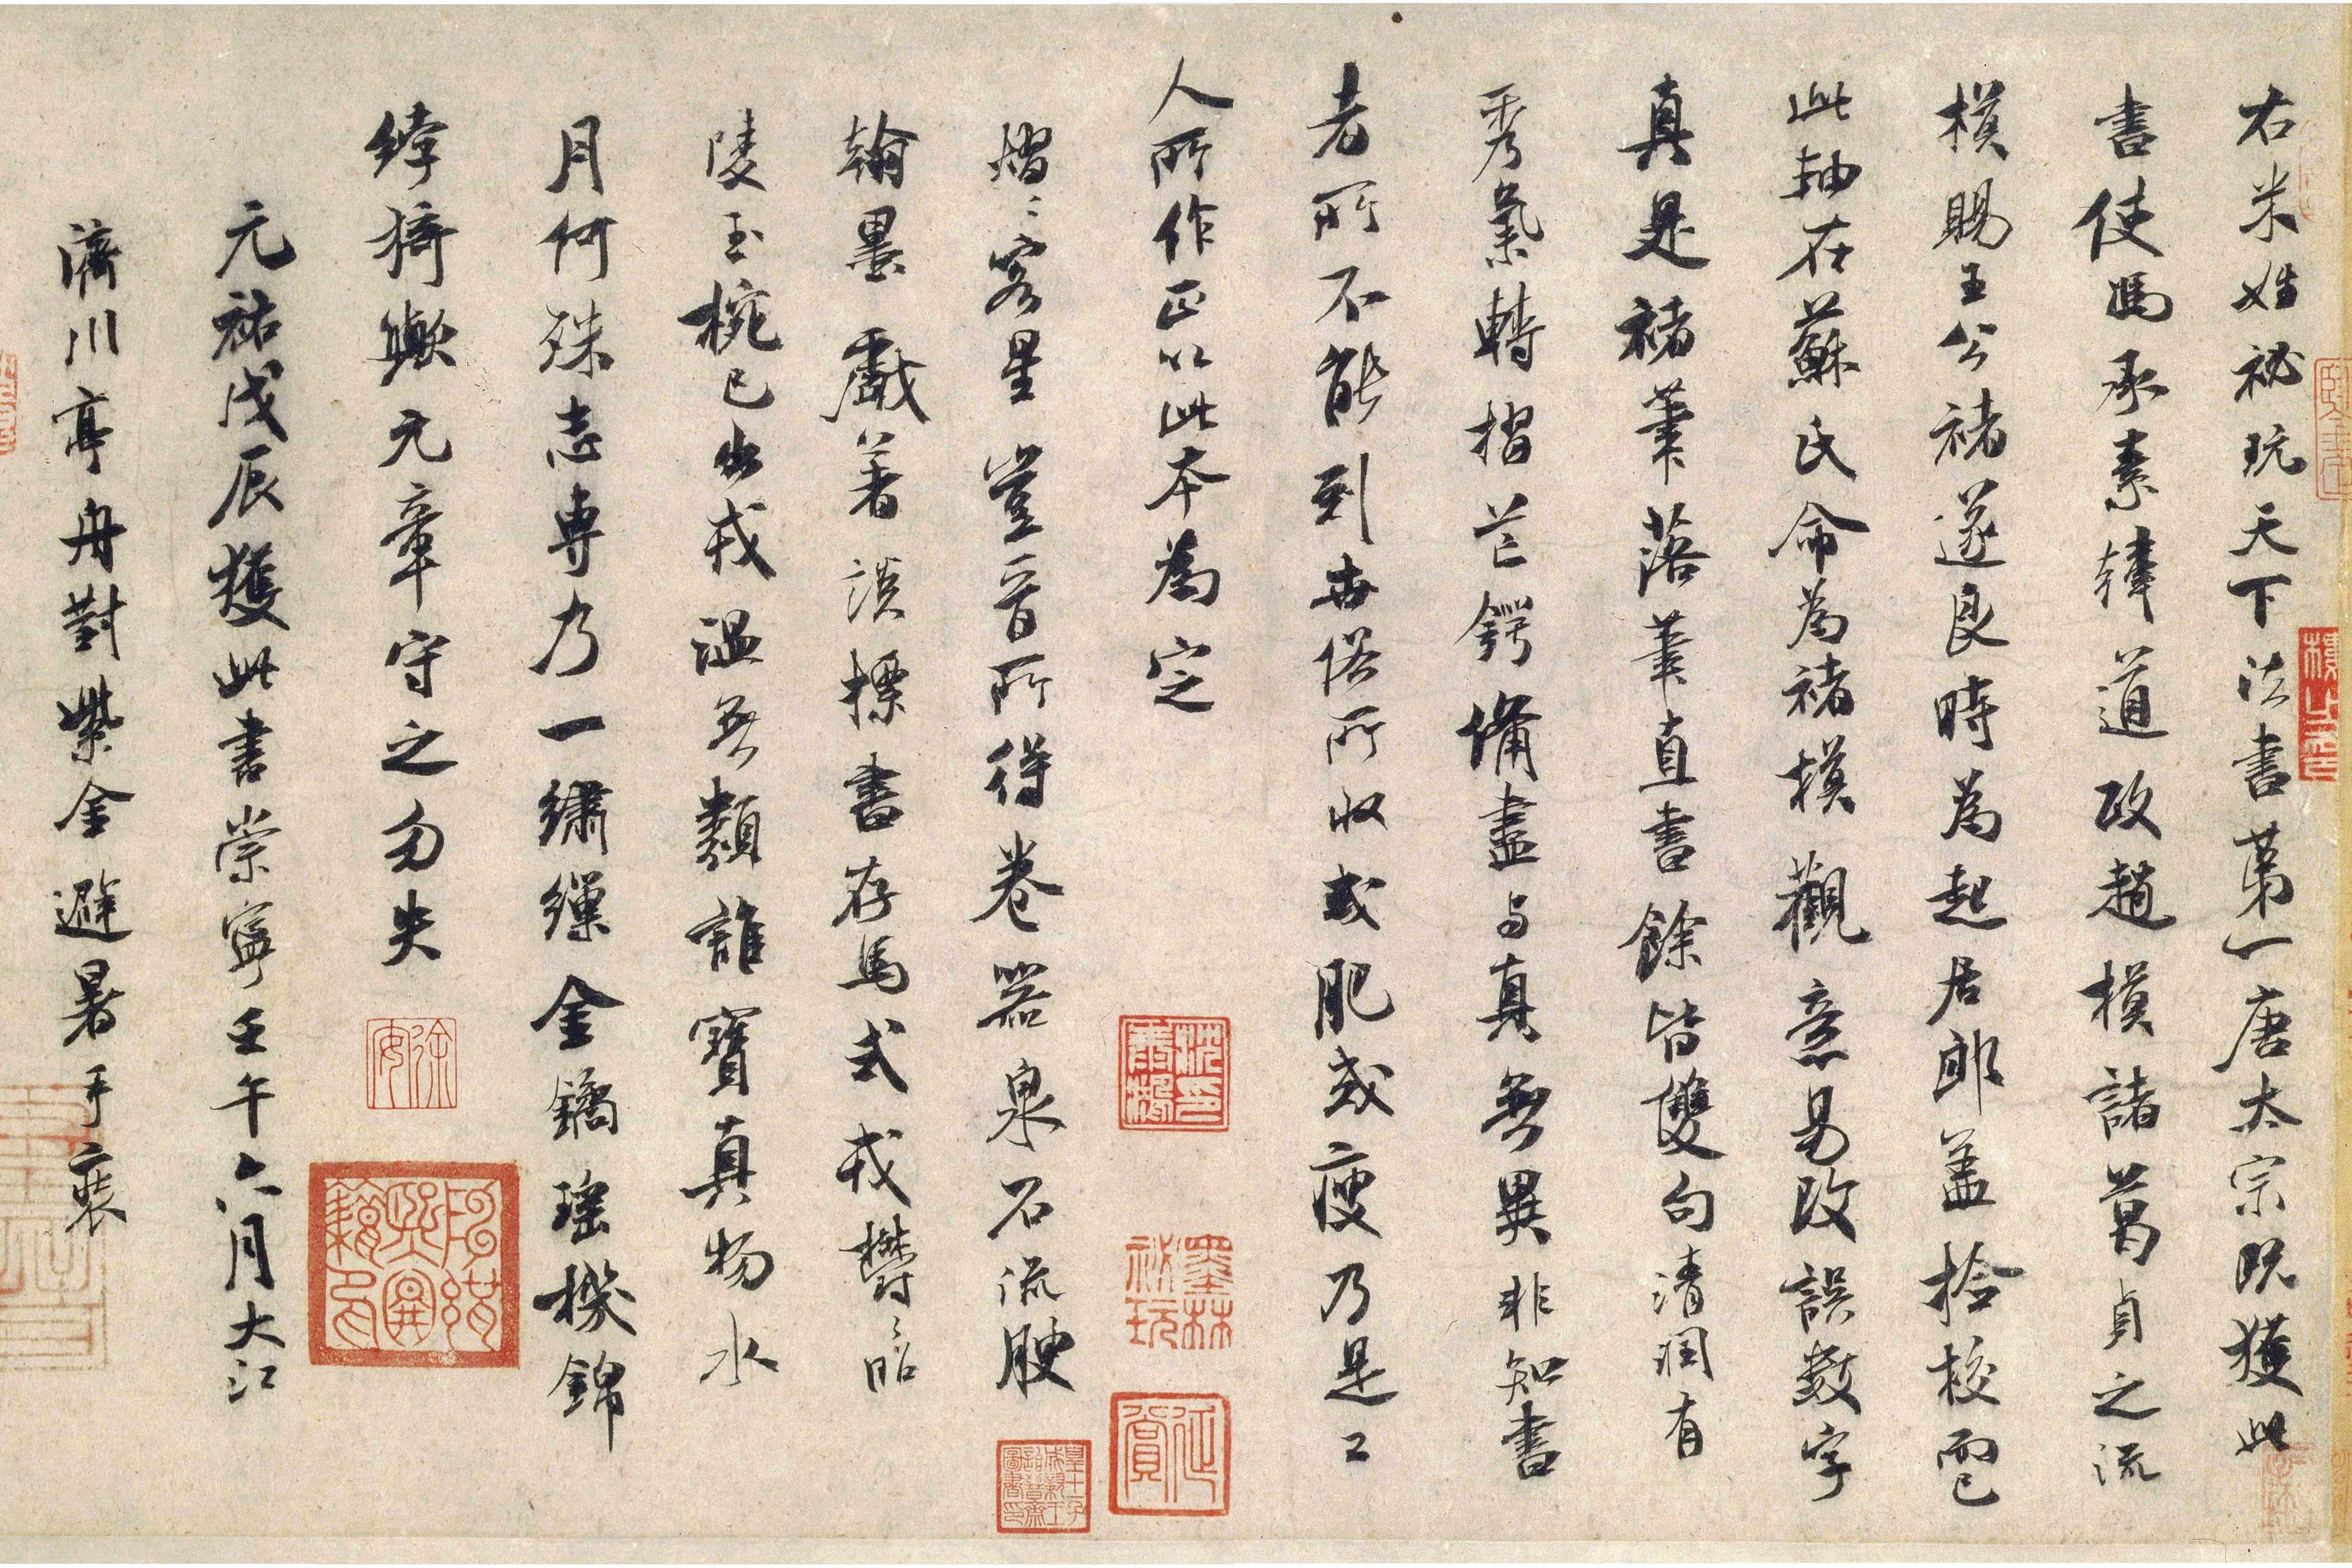 右米姓祕玩天下法書第一唐太宗既獲此
書使馮承素韓道政趙模諸葛貞之流
模賜王公褚遂良時為起居郎蓋撿校而已
此軸在蘇氏命為褚模觀意易改誤數字
真是褚筆落筆直書餘皆雙勾清潤有
秀氣轉摺芒鍔備盡与真無異非知書
者所不能到世俗所收或肥或瘦乃是工
人所作正以此本為定
熠〻客星豈晉所得卷器泉石流腴
翰墨戲著談標書存馬式戎欝〻昭
陵玉椀已出戎溫無類誰寶真物水
月何殊志専乃一繡繅金鐍瑤機錦
綍猗歟元章守之勿失
元祐戊辰獲此書崇寧壬午六月大江
濟川亭舟對紫金避暑手裝
墨林祕玩